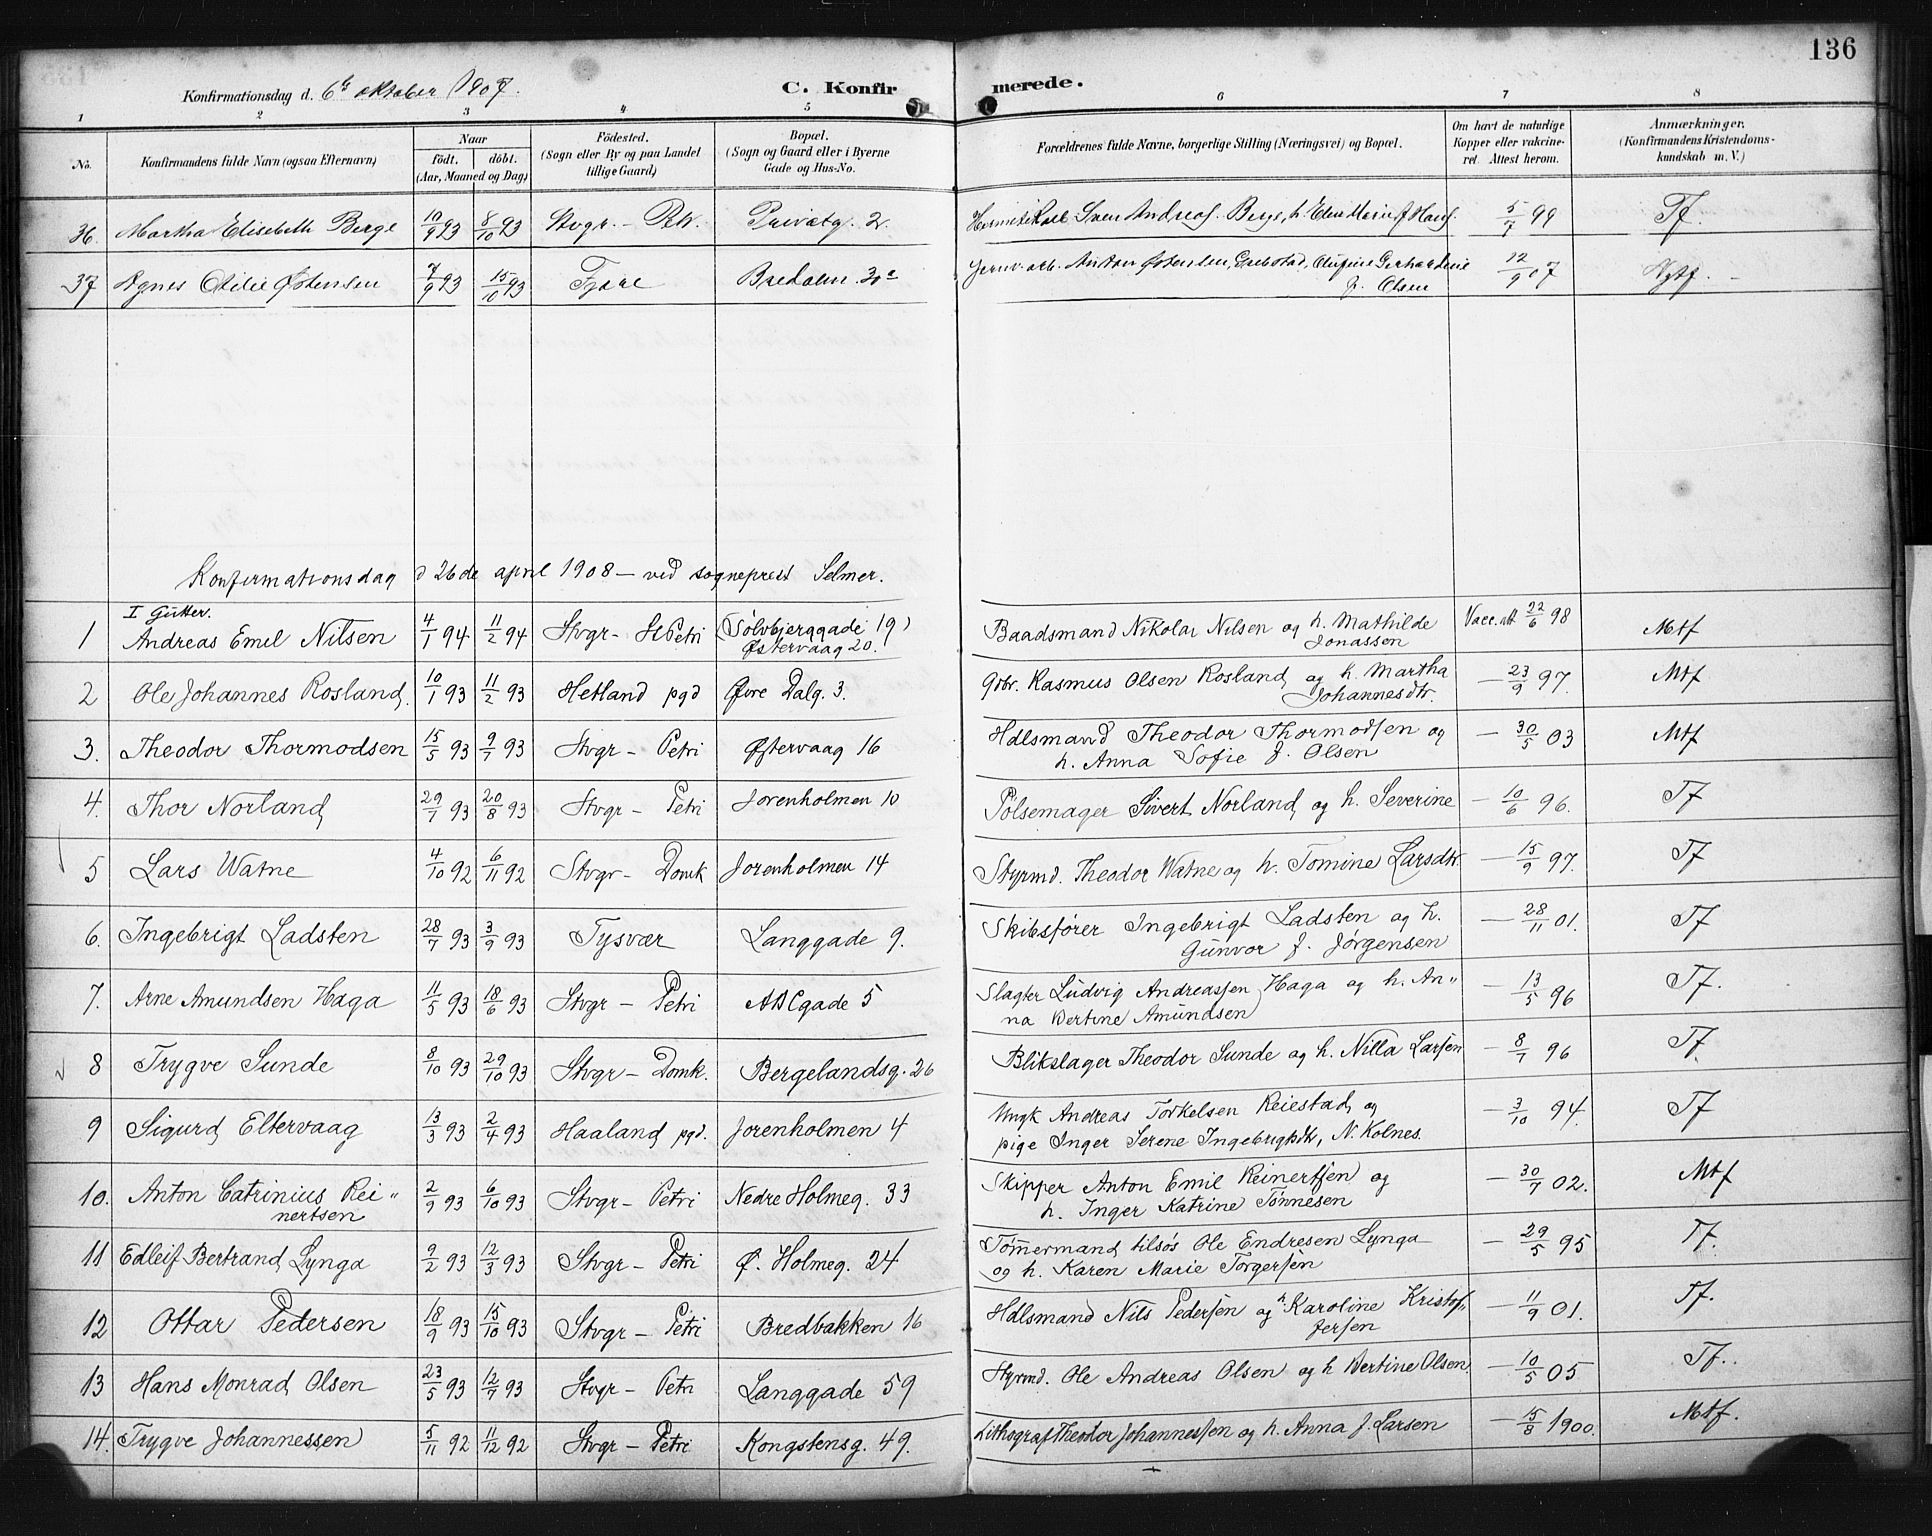 136
Konfirmationsdag d. 6te oktober 1907. C. Konfirmerede.
1 2 3 4 5 6 7 8
No. Konfirmandens fulde Navn (ogsaa Efternavn) Naar født. døbt. (Aar, Maaned og Dag) Fødested. (Sogn eller By og paa Landet tillige Gaard) Bopæl. (Sogn og Gaard eller i Byerne Gade og Hus-No. Forældrenes fulde Navne, borgerlige Stilling (Næringsvei) og Bopæl. Om havt de naturlige Kopper eller vakcineret. Attest herom. Anmærkninger. (Konfirmandens Kristendomskundskab m. V.)
36. Martha Elisabeth Berge 10/9 93 8/10 93 Stvgr. - Ptr. Privatg. 2. Sven Andreas Berge, h. Elen Marie f. Hans. 5/7 99 Tf.
37 Agnes Otilie Østensen 7/9 93 15/10 93 Fjære Bredalm. 30a Jernv. arb. Anton Østensen, Grebstad, Olufine Gerhardine
f. Olsen 12/9 07 Mgtf. -
Konfirmationsdag d 26de april 1908 - ved sogneprest Selmer.
I Gutter.
1 Andreas Emil Nilsen 4/1 94 11/2 94 Stvgr- St Petri (Sølvbjerggade 19) Baadsmand Nikolai Nilsen og h. Mathilde Vacc. att 22/6 98 Mtf
Østervaag 20. Jonassen
2 Ole Johannes Rosland. 10/1 93 11/2 93 Hetland pgd Øvre Dalg. 3. Gbr. Rasmus Olsen Rosland og h. Martha - 23/9 97. Mtf
Johannesdtr.
3. Theodor Thormodsen 15/5 93 9/7 93 Stvgr - Petri Østervaag 16 Hdlsmand Theodor Thormodsen og - 30/5 03 Mtf
h. Anna Sofie f. Olsen
4. Thor Norland 29/7 93 20/8 93 Stvgr - Petri Jorenholmen 10 Pølsemager Sivert Norland og h. Severine - 10/6 96. Tf
5 Lars Watne 4/10 92 6/11 92 Stvgr- Domk Jorenholmen 14 Styrmd. Theodor Watne og h. Tomine Larsdtr. - 15/9 97. Tf
6. Ingebrigt Ladsten 28/7 93 3/9 93 Tysvær Langgade 9. Skibsfører Ingebrigt Ladsten og h. - 28/11 01. Tf
Gunvor f. Jørgensen
7. Arne Amundsen Haga 11/5 93 18/6 93 Stvgr - Petri ABCgade 5 Slagter Ludvig Andreassen Haga og h. An" - 13/5 96 Tf.
na Bertine Amundsen
8 Trygve Sunde 8/10 93 29/10 93 Stvgr - Domk. Bergelandsg. 26 Blikslager Theodor Sunde og h. Nilla Larsen - 8/7 96 Tf.
9 Sigurd Eltervaag 13/3 93 2/4 93 Haaland pgd. Jorenholmen 4 Ungk Andreas Torkelsen Reiestad og - 3/10 94. Tf
pige Inger Serene Ingebrigtsdtr, N. Kolnes.
10. Anton Catrinius Rei" 2/9 93 6/10 93 Stvgr- Petri Nedre Holmeg. 33 Skipper Anton Emil Reinertsen og - 30/7 02. Mtf
nertsen h. Inger Katrine Tønnesen
11 Edleif Bertrand Lynga 9/2 93 12/3 93 Stvgr - Petri Ø. Holmeg. 24 Tømmermand tilsøs Ole Endresen Lynga - 29/5 95 Tf.
og h. Karen Marie Torgersen
12 Ottar Pedersen 18/9 93 15/10 93 Stvgr - Petri Bredbakken 16 Hdlsmand Nils Pedersen og h. Karoline Kristof" - 11/9 01. Tf.
fersen
13 Hans Monrad Olsen 23/5 93 12/7 93 Stvgr - Petri Langgade 59 Styrmd. Ole Andreas Olsen og h Bertine Olsen - 10/5 05 Tf.
14. Trygve Johannessen 5/11 92 11/12 92 Stvgr - Petri Kongstensg. 49. Lithograf Theodor Johannessen og h. Anna f. Larsen - 15/8 1900. Mtf.